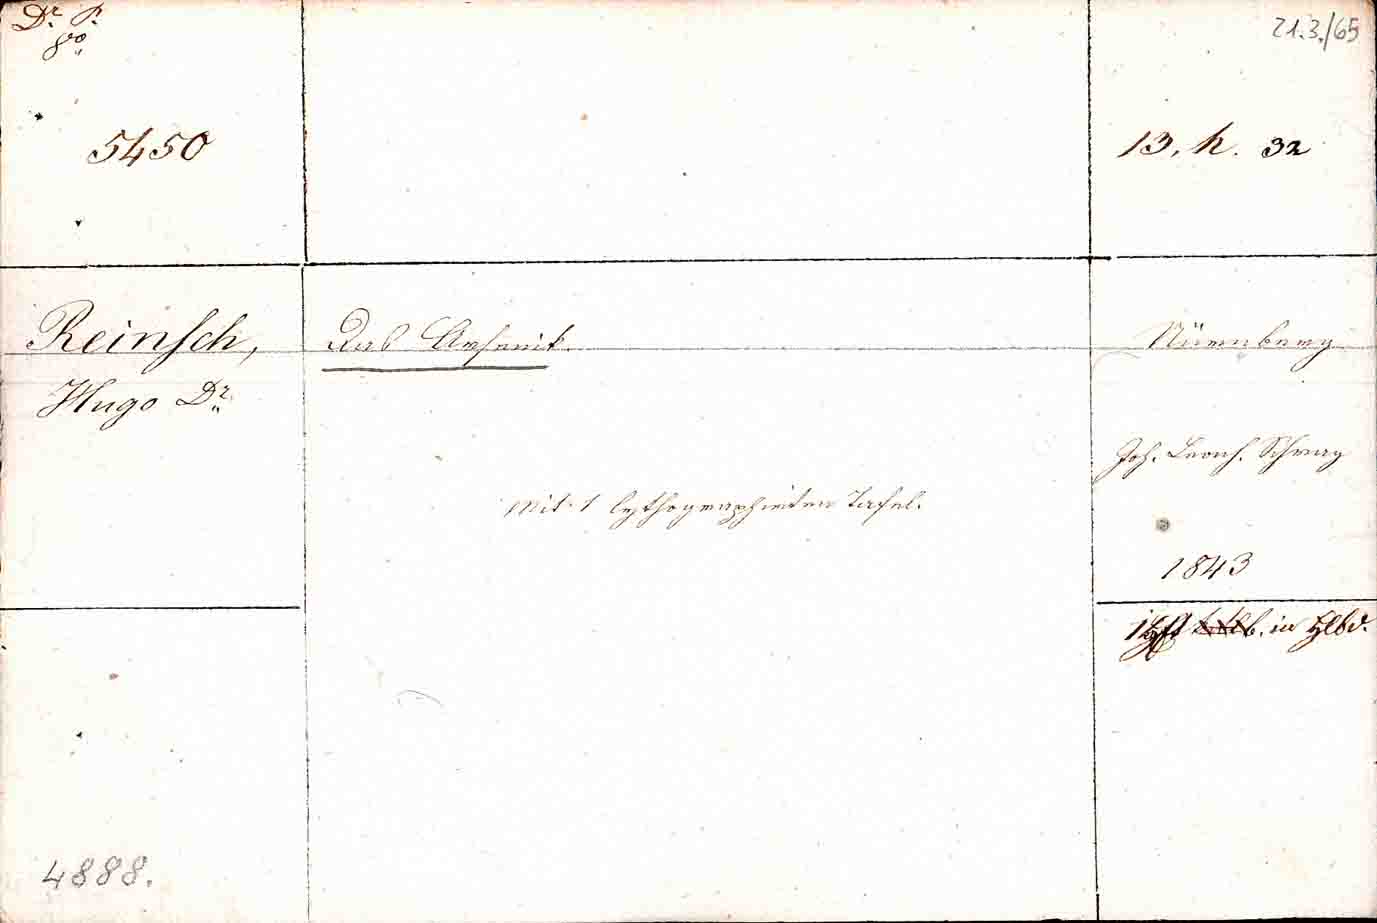 Dr. P.
8vo
21.3./65
5450
13. h. 32
Reinsch,
Das Arsenik.
Nürnberg
Hugo Dr.
Joh. Leonh. Schrag
Mit 1 lythographirten Tafel.
1843
b. in Hlbd.
4888.